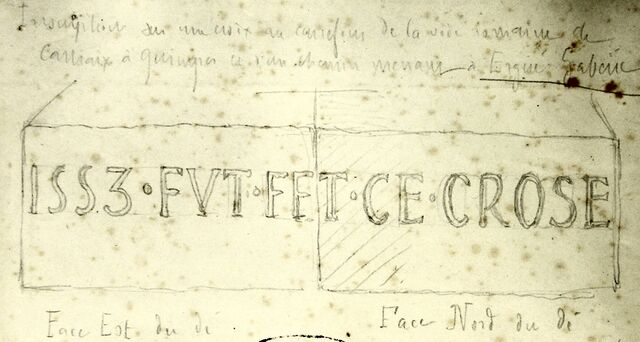 Inscription sur une croix au carrefour de la voie romaine de
Carhaix à Quimper et d'un chemin menant à Ergué-Gabéric
1553·FVT·FET·CE·CROSE
Face Est du dé
Face Nord du dé